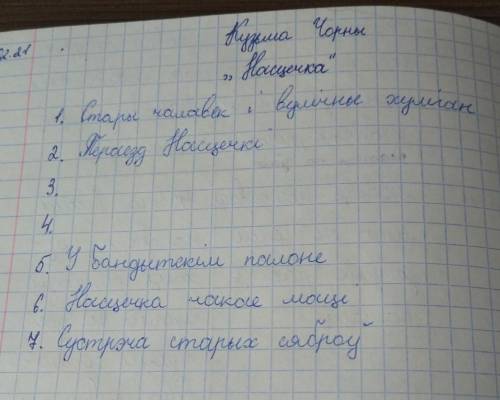 02.21
Кузьма Чорны
„Насцечка"
1. Стары чалавек і вулічны хуліган
2. Пераезд Насцечкі
3.
4.
5. У бандытскім палоне
6. Насцечка чакае маці
7. Сустрэча старых сяброў